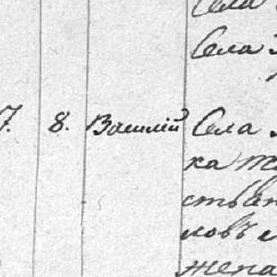 Села
Села
7. 8. Василій Села
ка
ловъ
жена